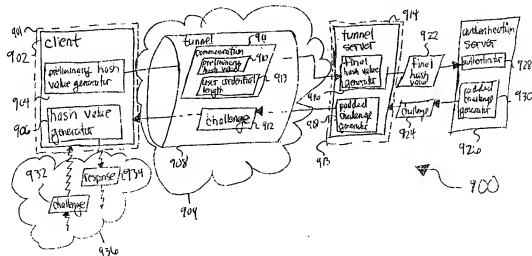 901
902
client
preliminary hash
value generator
964
hash value
generator
906
932
challenge
response
934
936
tunnel
911
communication
preliminary
hash value
910
user credential
length
913
challenge
912
908
904
tunnel
server
914
final
hash value
generator
916
padded
challenge
generator
918
913
922
final
hash
value
challenge
924
authentication
server
authenticator
928
padded
challenge
generator
930
926
900